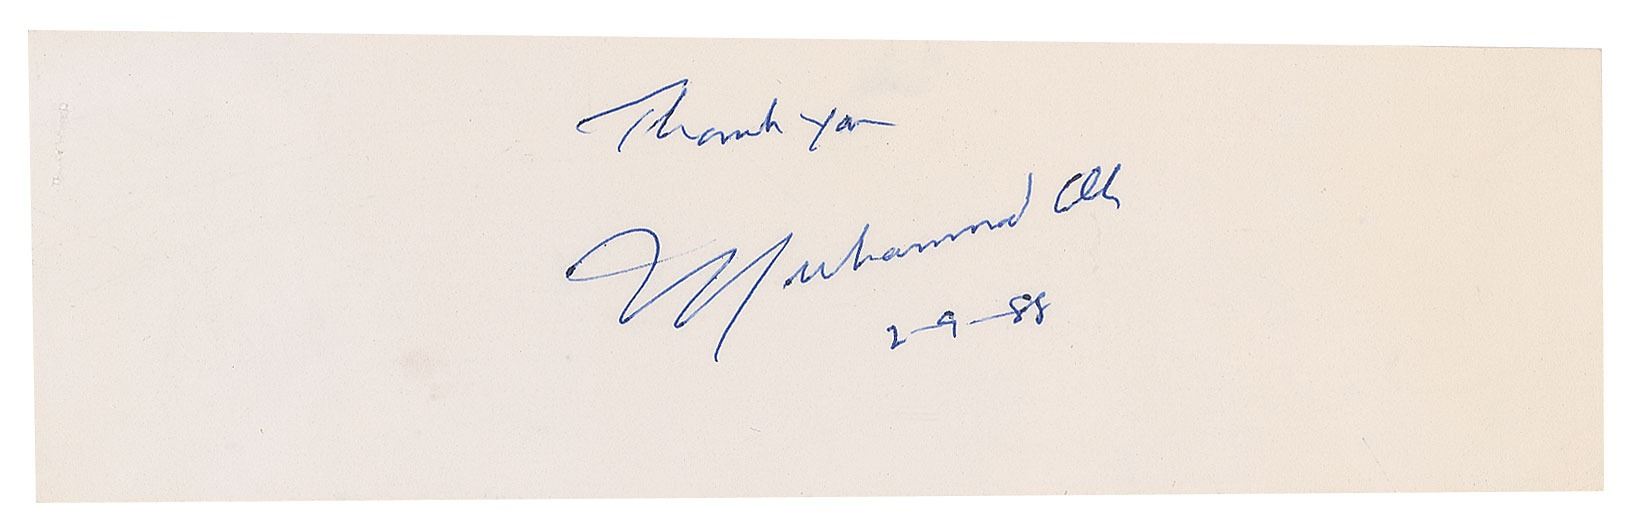 Thank you
Muhammad Ali
2-9-88